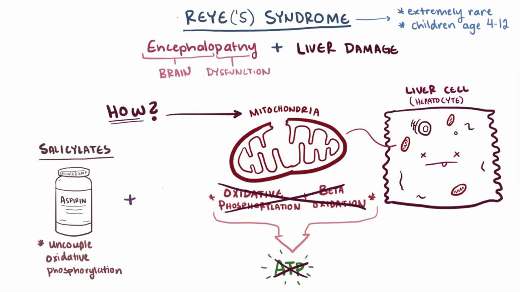 REYE('S) SYNDROME
* extremely rare
* children age 4-12
Encephalopathy + LIVER DAMAGE
BRAIN DYSFUNCTION
HOW?
MITOCHONDRIA
LIVER CELL
(HEPATOCYTE)
SALICYLATES
ASPIRIN
+
* uncouple
oxidative
phosphorylation
* OXIDATIVE PHOSPHORYLATION + BETA OXIDATION *
ATP